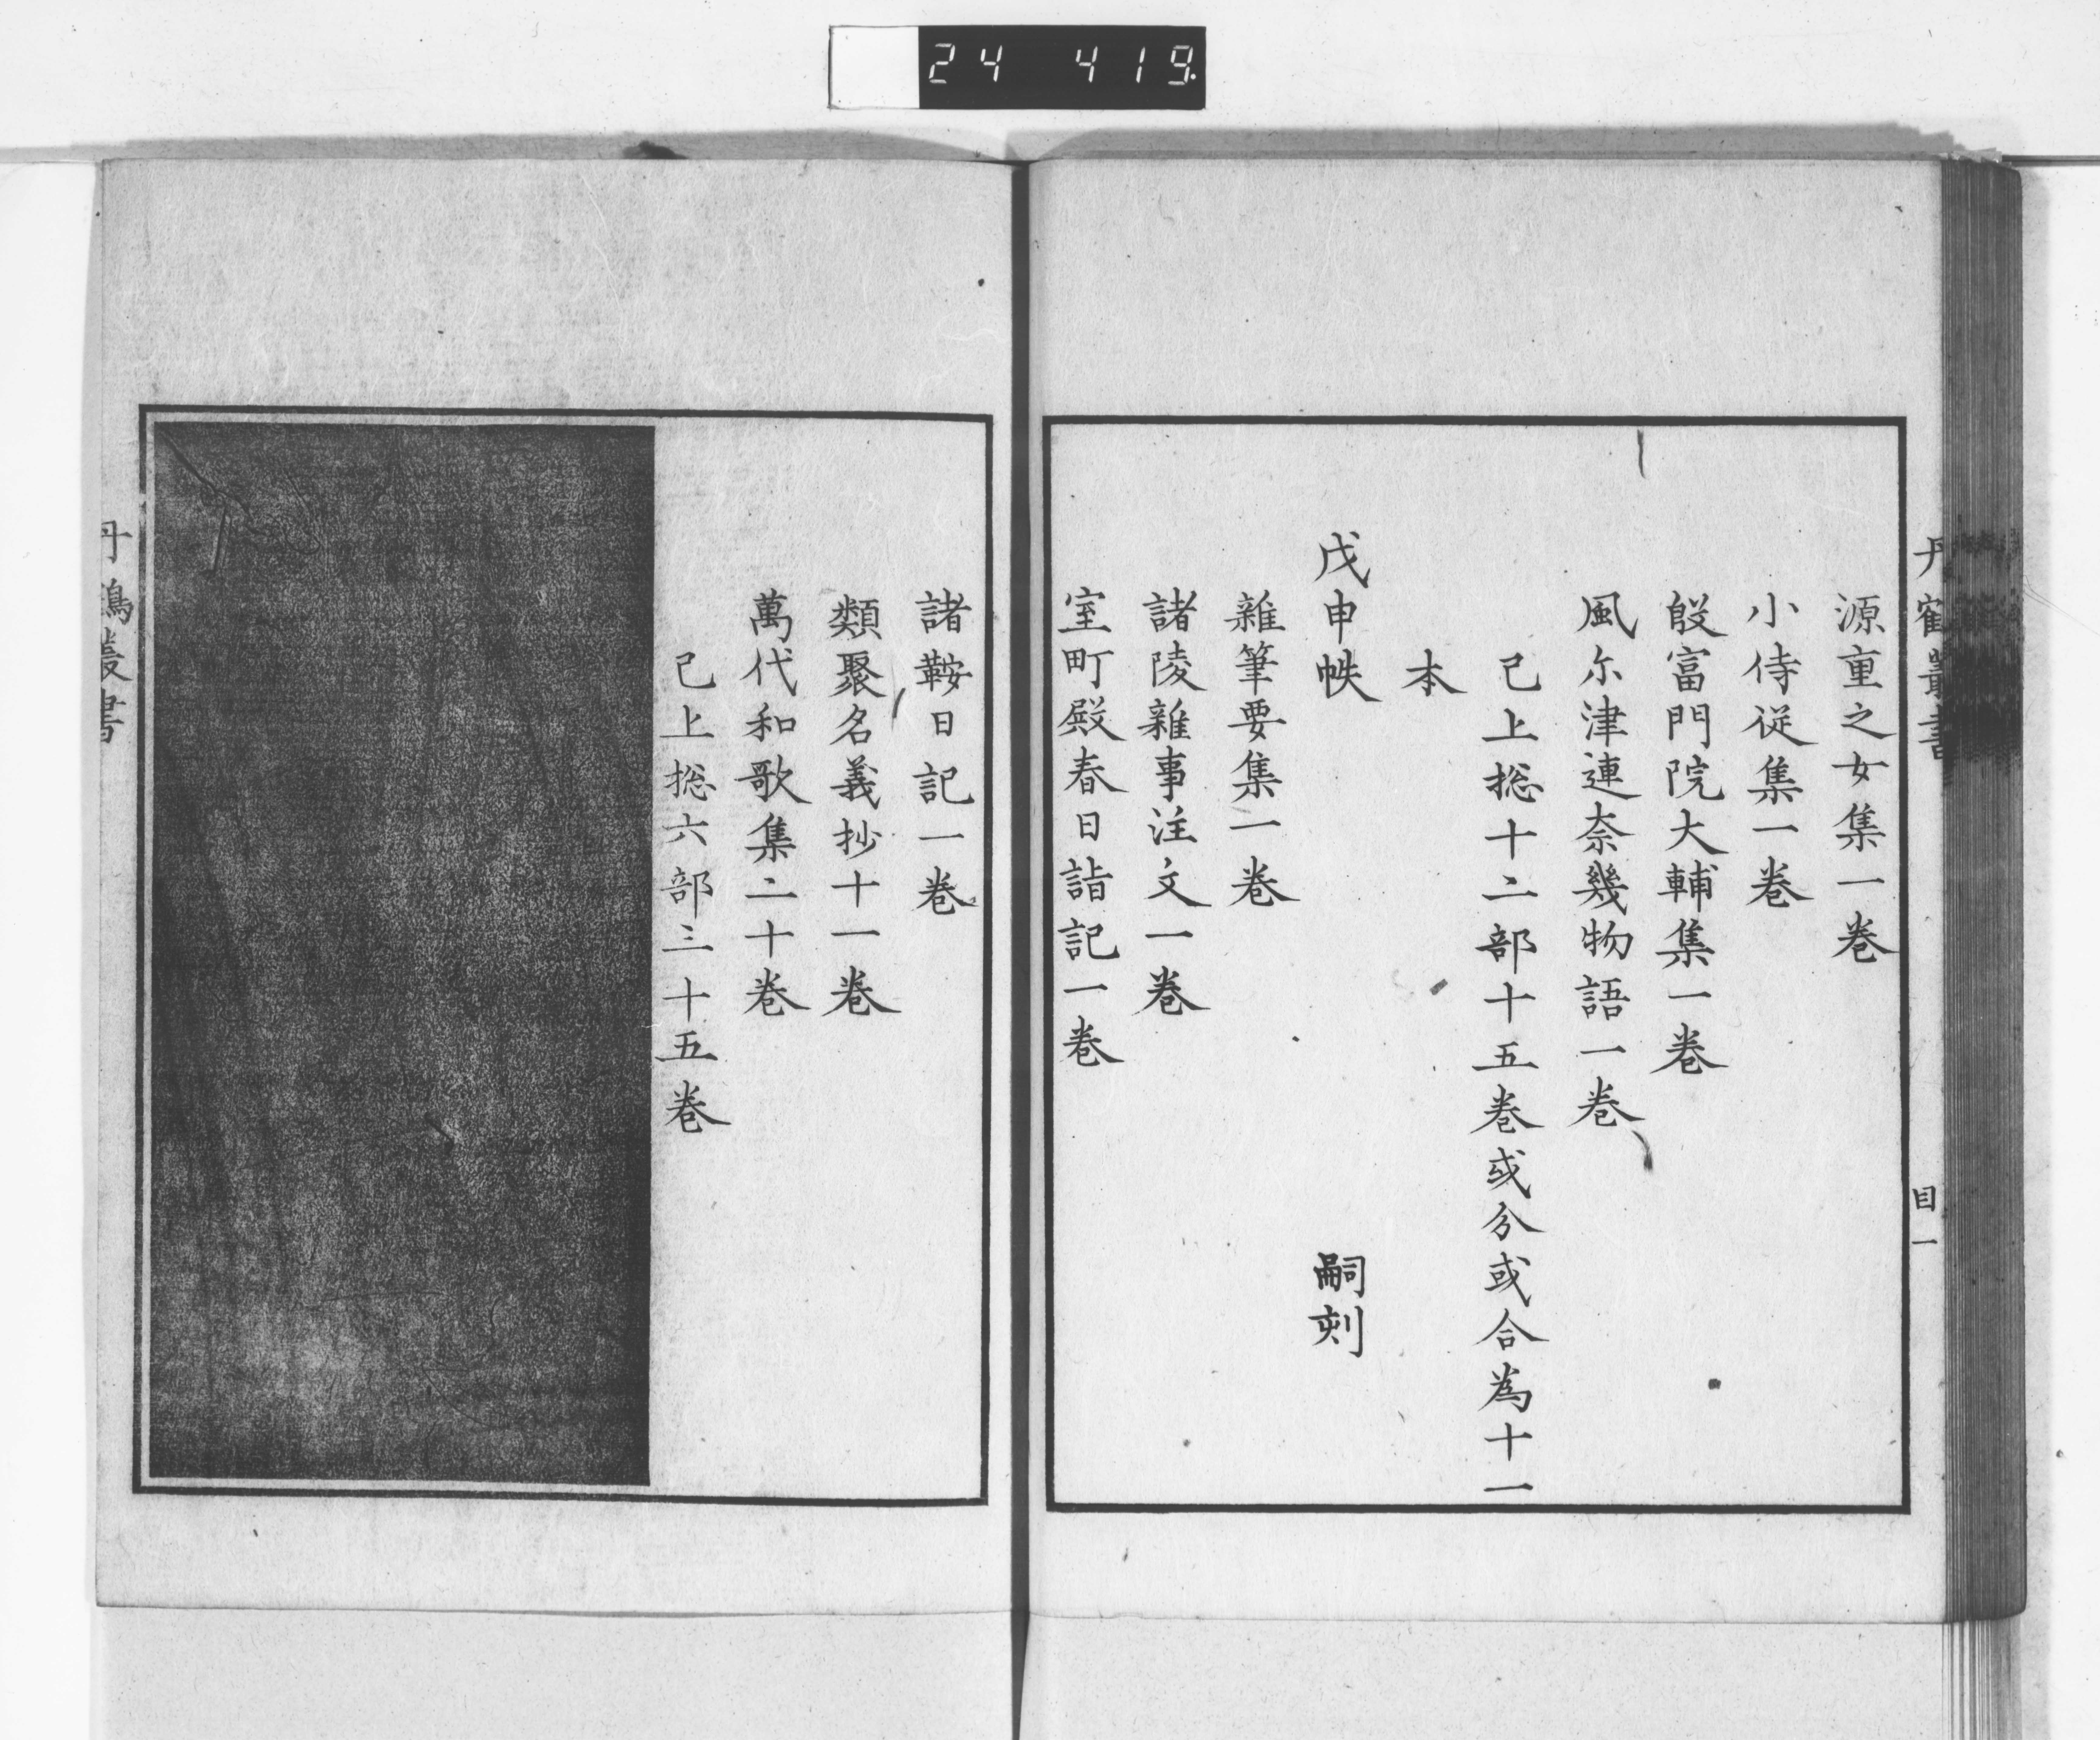 24 419.
丹鶴叢書
目一
源重之女集一卷
小侍従集一卷
殷富門院大輔集一卷
風尓津連奈幾物語一卷
已上捴十二部十五卷或分或合為十一
本
戊申帙 嗣刻
雜筆要集一卷
諸陵雜事注文一卷
室町殿春日詣記一卷
諸鞍日記一卷
類聚名義抄十一卷
萬代和歌集二十卷
已上捴六部三十五卷
丹鶴叢書